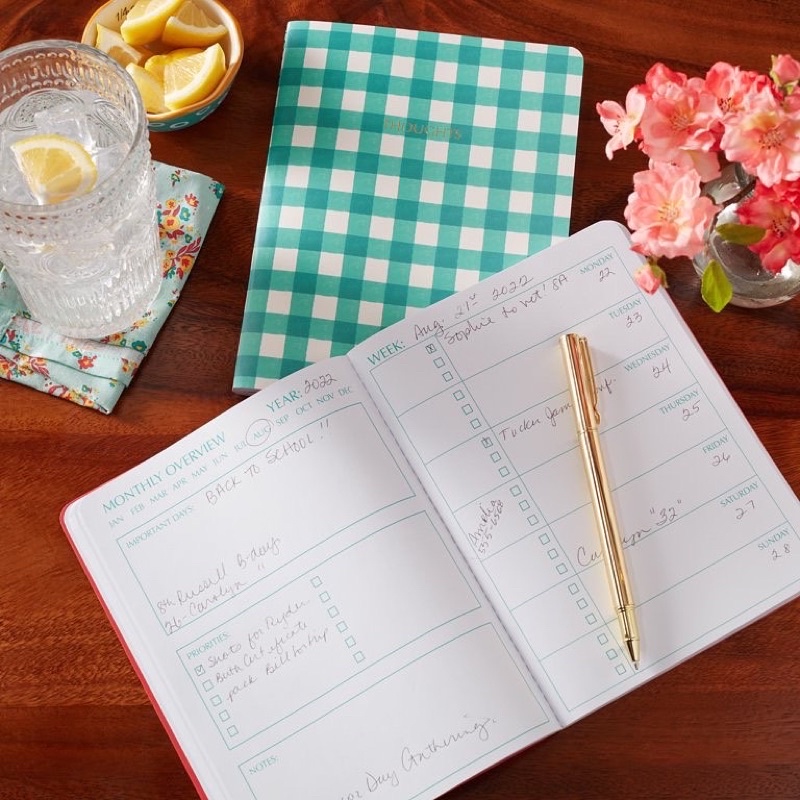 THOUGHTS
MONTHLY OVERVIEW
YEAR: 2022
JAN FEB MAR APR MAY JUN JUL AUG SEP OCT NOV DEC
IMPORTANT DAYS:
BACK TO SCHOOL !!
8th Russell B-day
26- Carolyn "
PRIORITIES:
Shots for Ryder
Birth Certificate
pack Bill for trip
NOTES:
Day Gathering.
WEEK: Aug. 21st 2022
MONDAY
22
Sophie to vet! 8A
TUESDAY
23
WEDNESDAY
24
Tucker
THURSDAY
25
Amelia
555-6568
FRIDAY
26
"32"
SATURDAY
27
SUNDAY
28